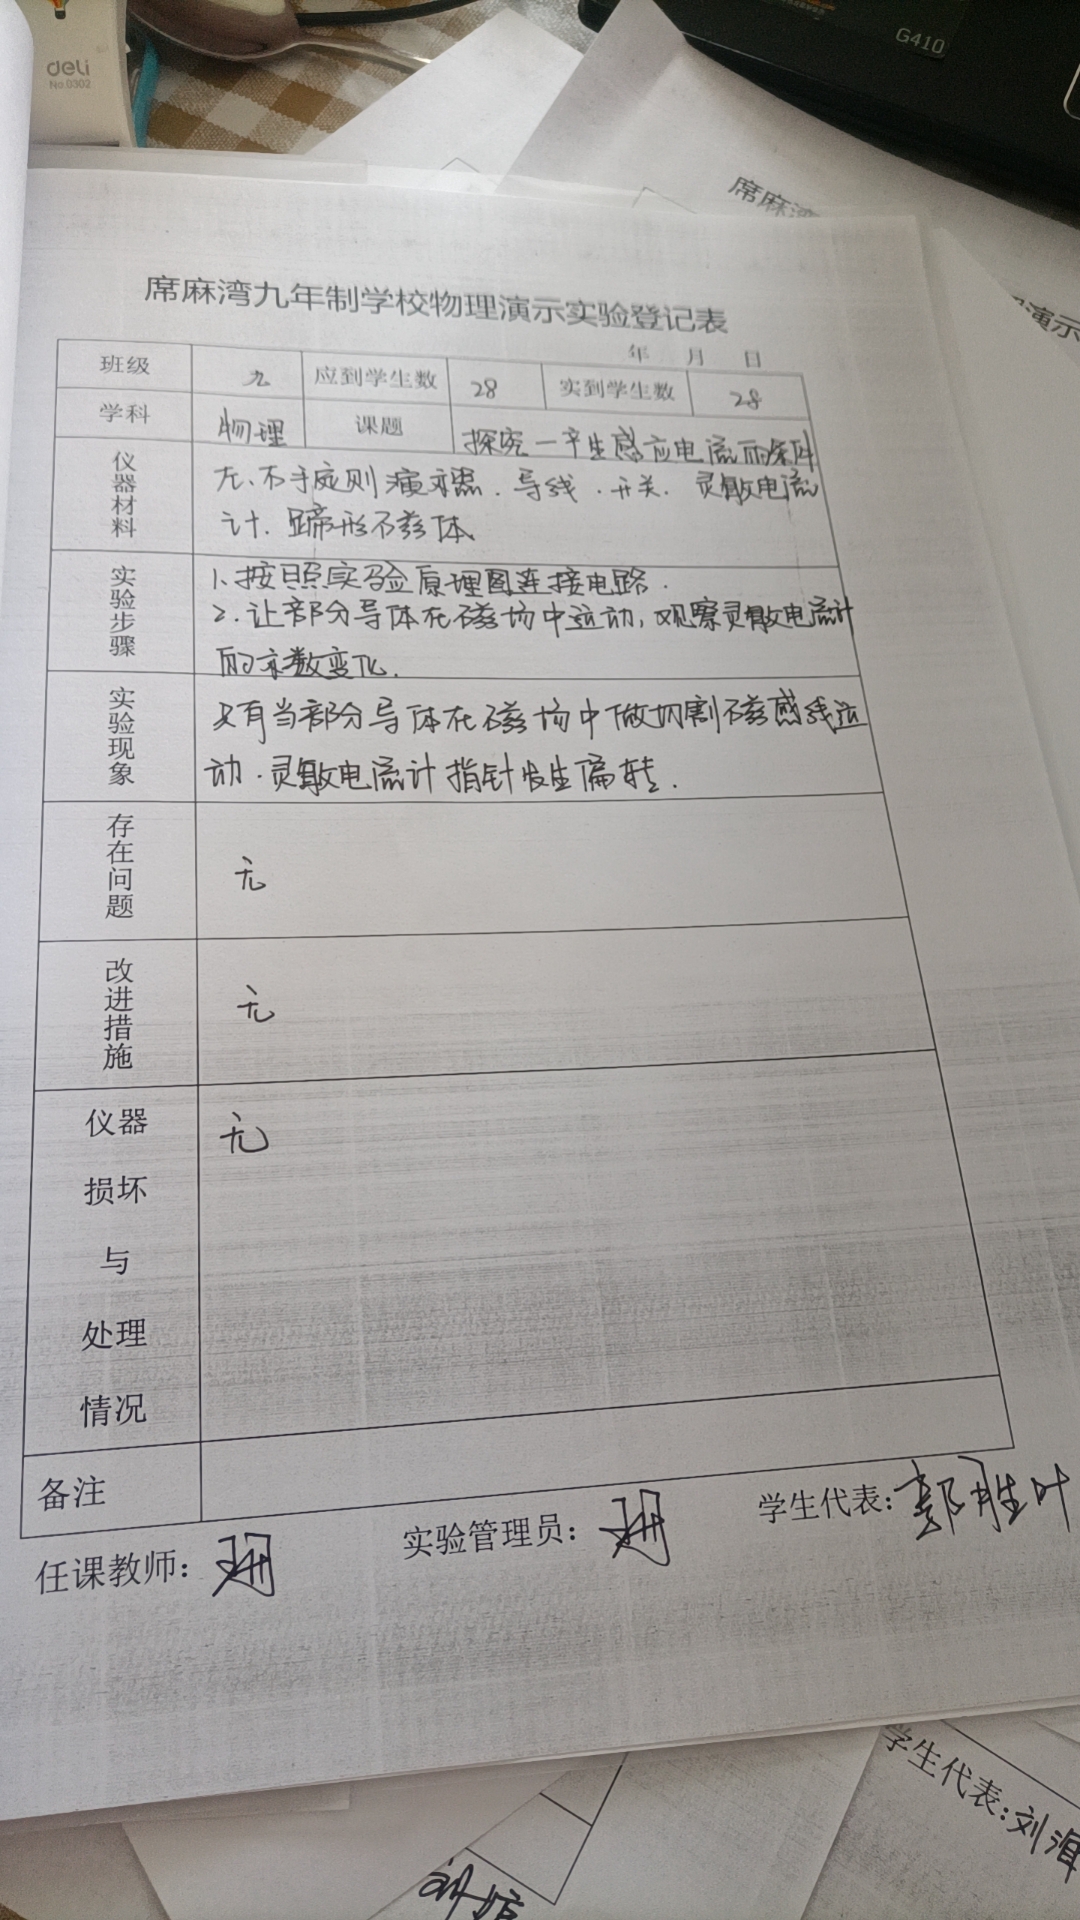 deli
No.0302
G410
席麻湾
演示
席麻湾九年制学校物理演示实验登记表
年 月 日
班级 九 应到学生数 28 实到学生数 28
学科 物理 课题 探究一产生感应电流的条件
仪器材料 左、右手定则演示器.导线.开关.灵敏电流
计.蹄形磁体
实验步骤 1、按照实验原理图连接电路.
2.让部分导体在磁场中运动,观察灵敏电流计
的示数变化.
实验现象 只有当部分导体在磁场中做切割磁感线运
动.灵敏电流计指针发生偏转.
存在问题 无
改进措施 无
仪器损坏与处理情况 无
备注
任课教师: 实验管理员: 学生代表:郭胜叶
学生代表:刘